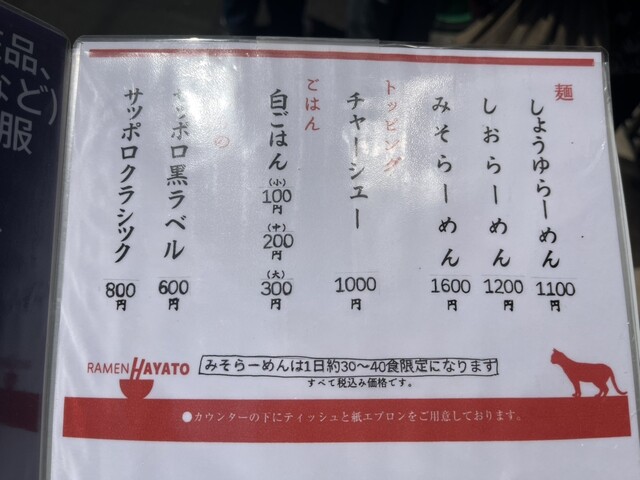 麺
しょうゆらーめん
1100円
しおらーめん
1200円
みそらーめん
1600円
トッピング
チャーシュー
1000円
ごはん
白ごはん
(小)
100円
(中)
200円
(大)
300円
の
サッポロ黒ラベル
600円
サッポロクラシック
800円
RAMEN HAYATO
みそらーめんは1日約30〜40食限定になります
すべて税込み価格です。
●カウンターの下にティッシュと紙エプロンをご用意しております。
品、
など)
服